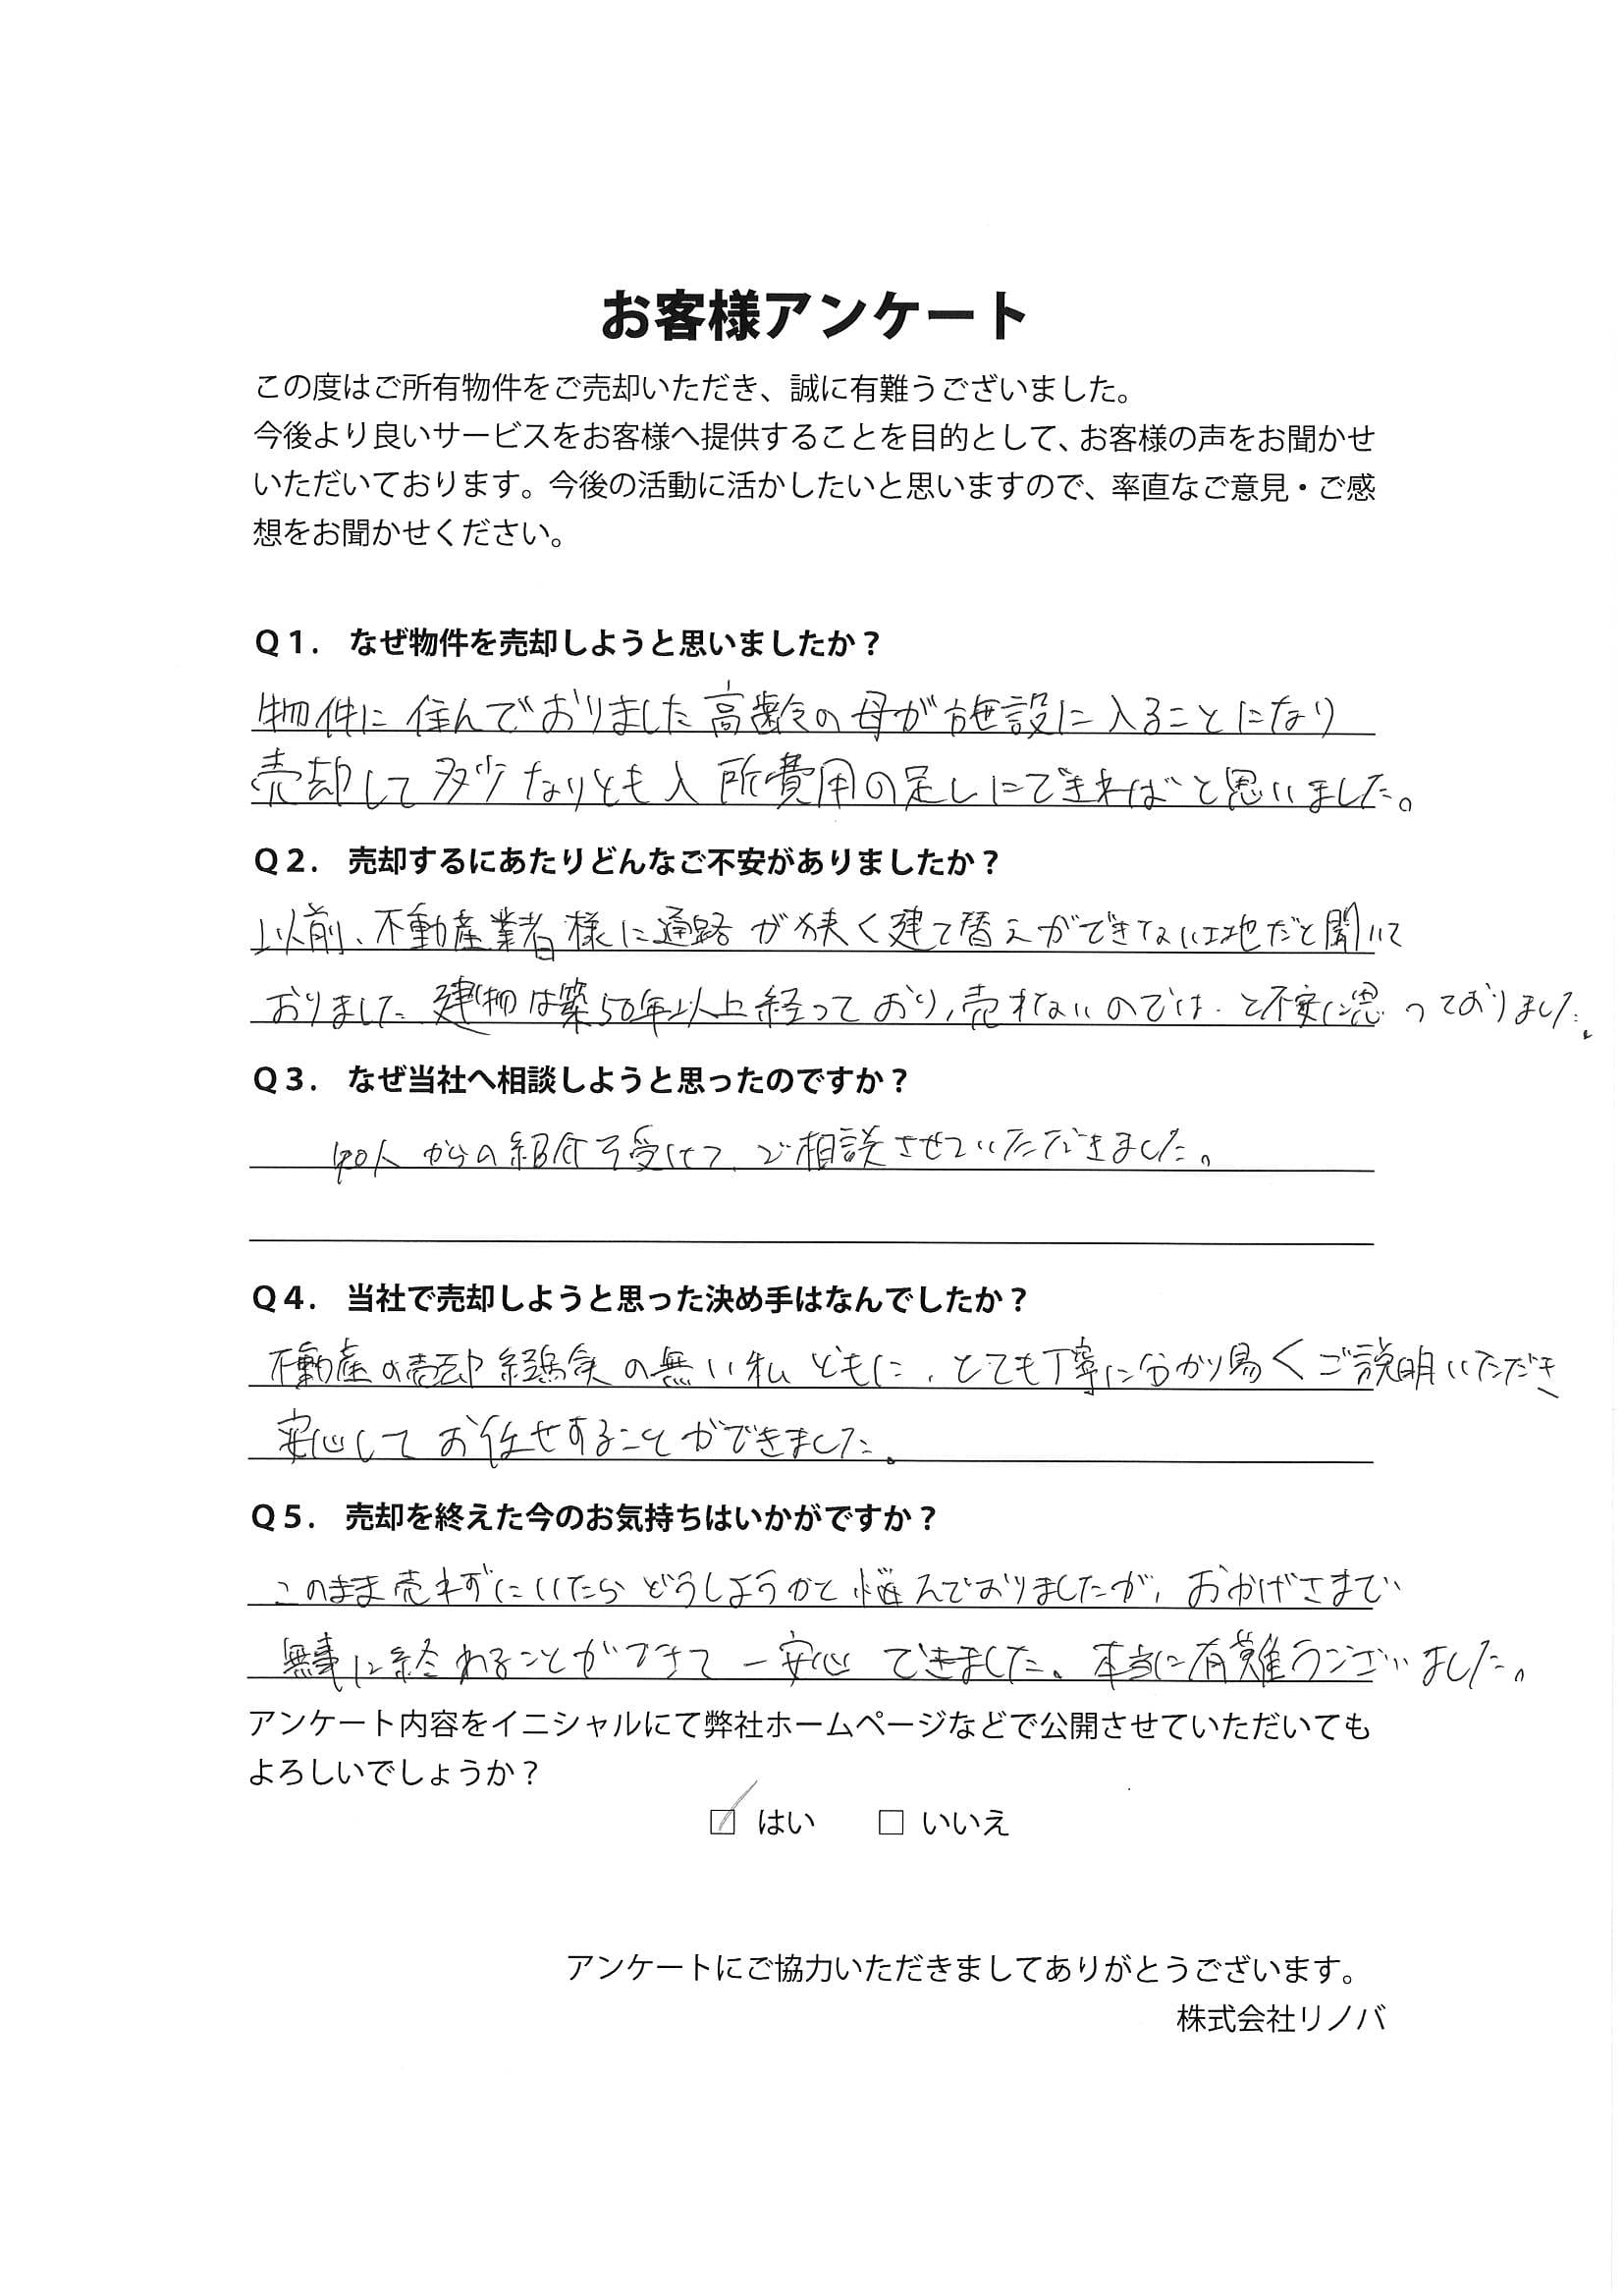 お客様アンケート
この度はご所有物件をご売却いただき、誠に有難うございました。
今後より良いサービスをお客様へ提供することを目的として、お客様の声をお聞かせ
いただいております。今後の活動に活かしたいと思いますので、率直なご意見・ご感
想をお聞かせください。
Q1. なぜ物件を売却しようと思いましたか？
物件に住んでおりました高齢の母が施設に入ることになり
売却して多少なりとも入所費用の足しにできればと思いました。
Q2. 売却するにあたりどんなご不安がありましたか？
以前、不動産業者様に通路が狭く建て替えができない土地だと聞いて
おりました。建物は築50年以上経っており、売れないのでは、と不安に思っておりました。
Q3. なぜ当社へ相談しようと思ったのですか？
知人からの紹介を受けて、ご相談させていただきました。
Q4. 当社で売却しようと思った決め手はなんでしたか？
不動産の売却経験の無い私どもに、とても丁寧に分かり易くご説明いただき
安心してお任せすることができました。
Q5. 売却を終えた今のお気持ちはいかがですか？
このまま売れずにいたらどうしようかと悩んでおりましたが、おかげさまで
無事に終わることができて一安心できました。本当に有難うございました。
アンケート内容をイニシャルにて弊社ホームページなどで公開させていただいても
よろしいでしょうか？
☑ はい □ いいえ
アンケートにご協力いただきましてありがとうございます。
株式会社リノバ